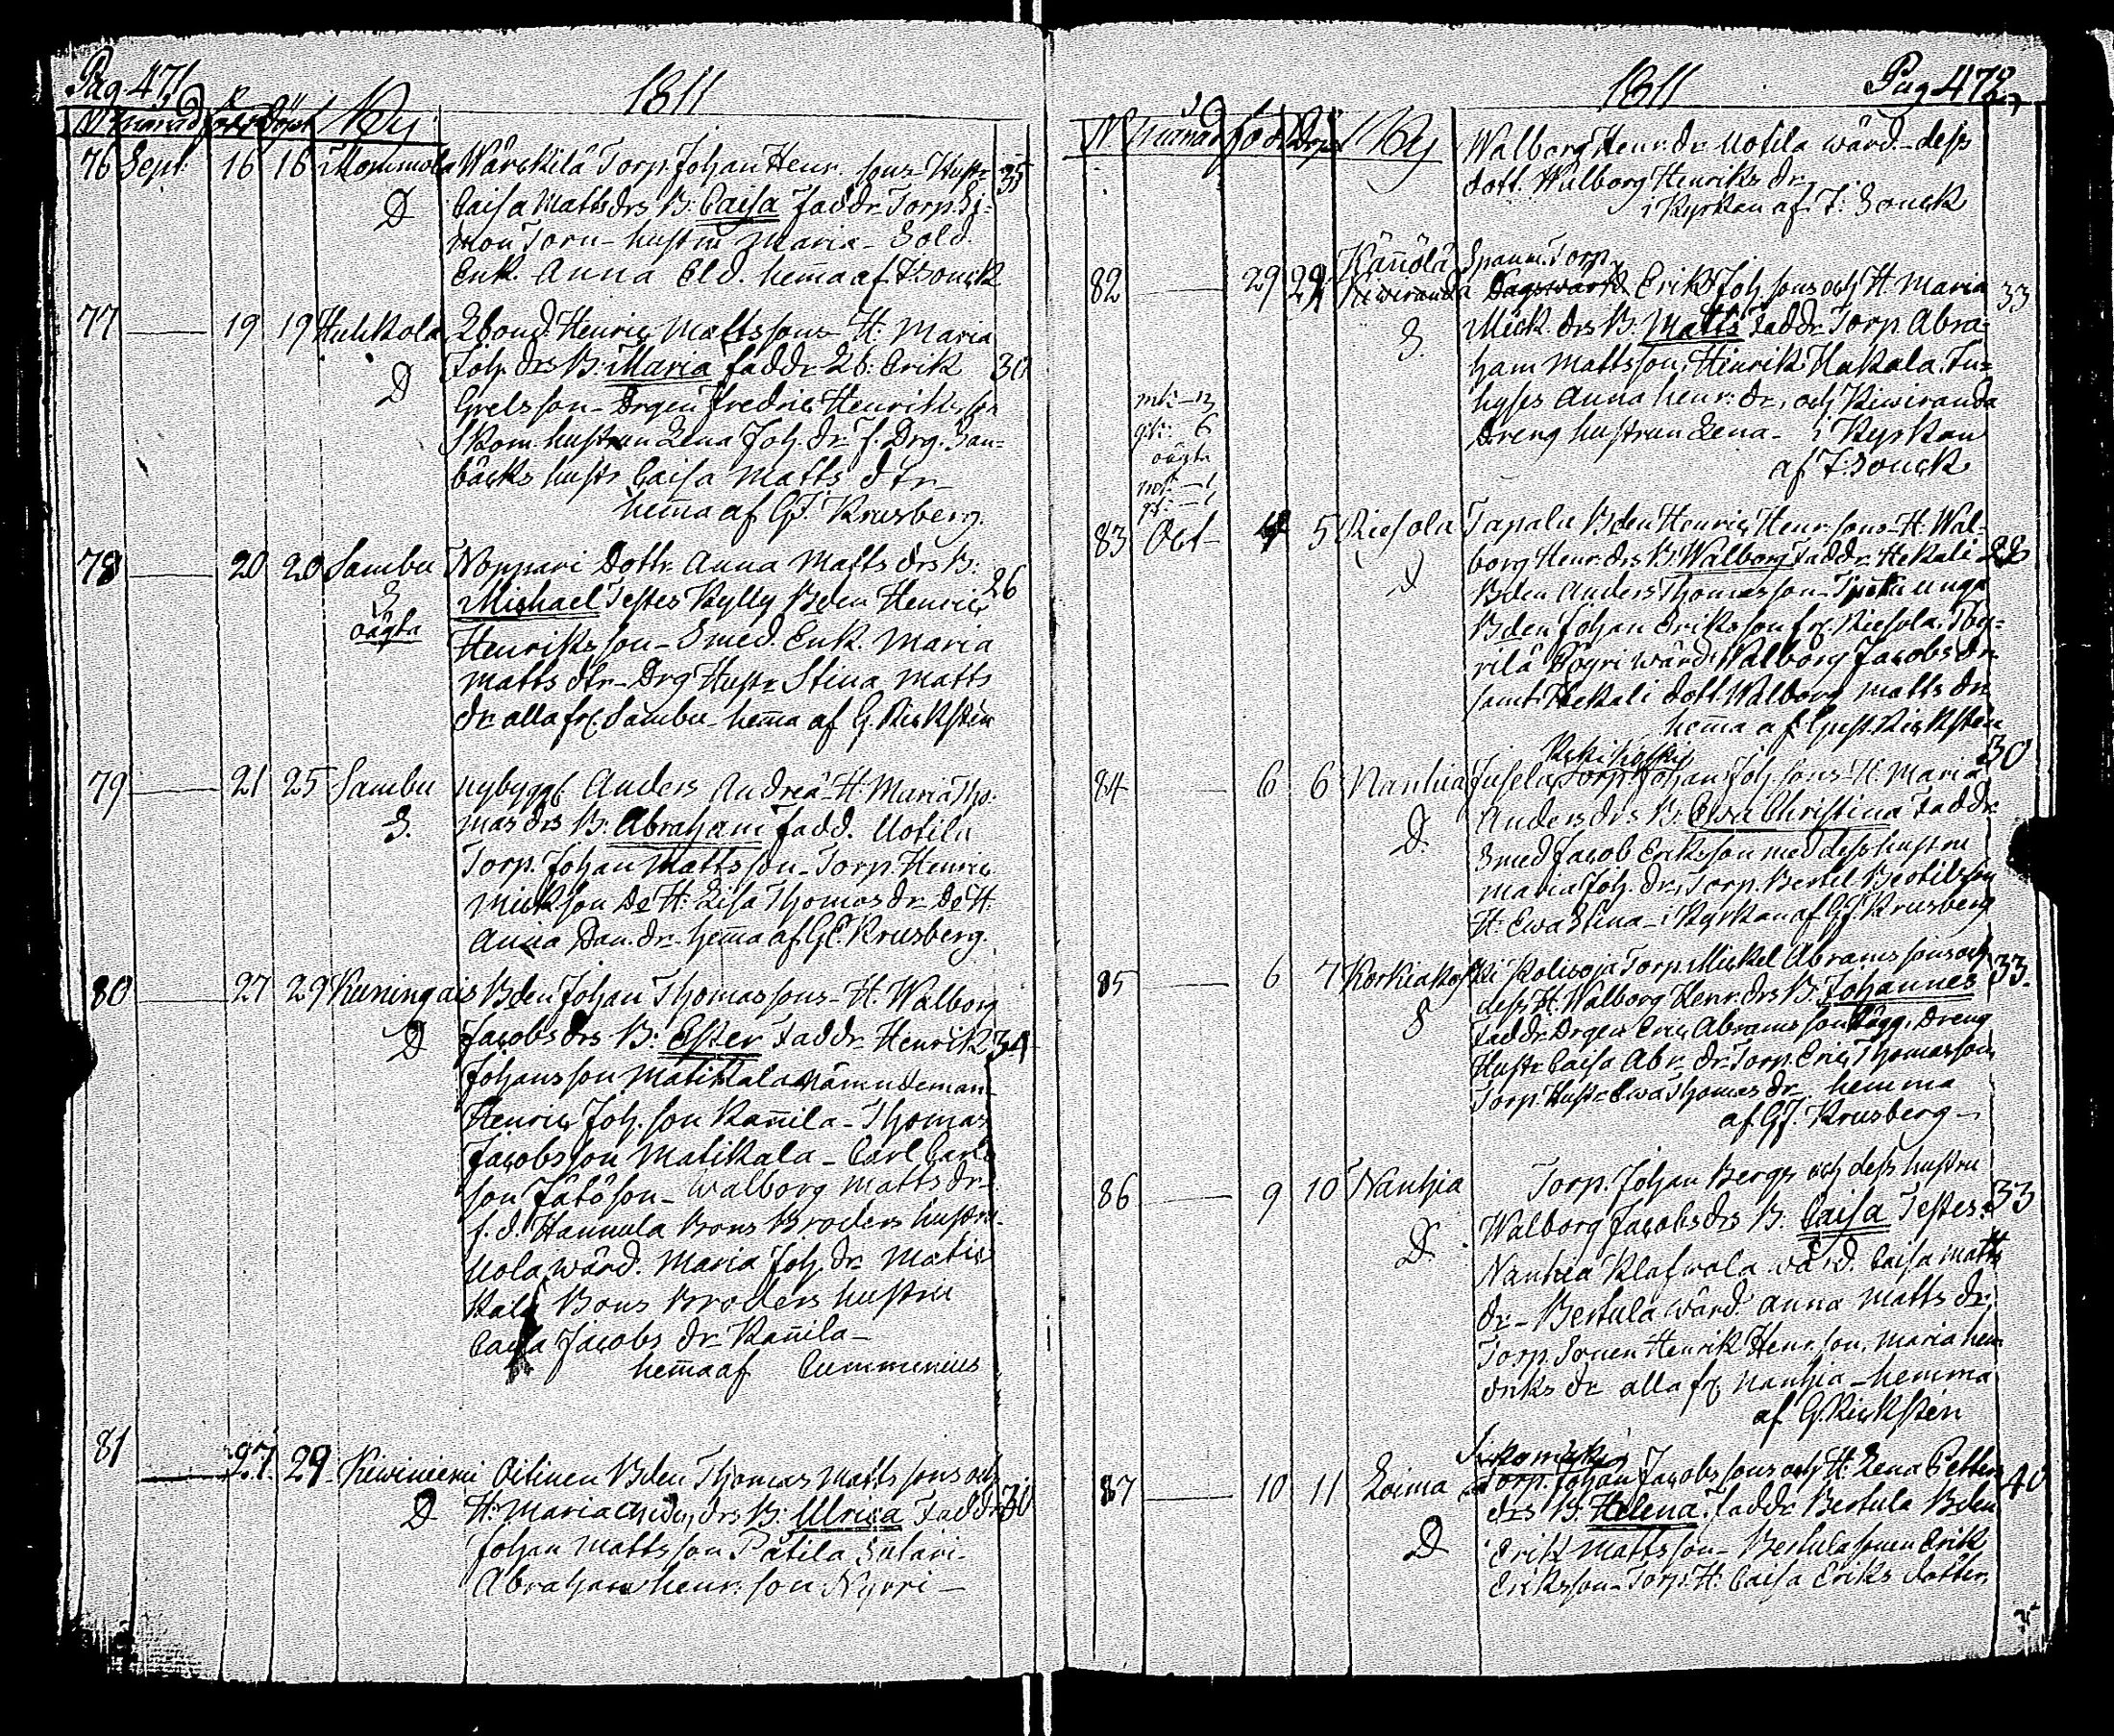 Pag. 471
1811
N. månad född Döpt By
76 Sept. 16 16 Mommola Wärckilä Torp. Johan Henr. sons Hustr 35
D Caisa Matts drs B: Caisa Faddr Torp. Si-
mon Torn - hustru Maria - Sold.
Enk. Anna Eld. hem̄a af F. Souck
77 — 19 19 Huhkola Lbond. Henric Mattssons H: Maria
D Joh. drs B: Maria faddr Lb: Erik 30
Grelsson - Drgen Fredric Henriksson
Skom. hustrun Lena Joh. dr f. Drg. San-
bäcks hustr Caisa Matts dtr
hem̄a af GJ. Krusberg.
78 — 20 20 Sambu Noppari Dottr. Anna Matts drs B: 26
S Michael Testes Kylly Bden Henric
oägta Henriksson - Smed. Enk. Maria
Matts dtr - Drg Hustr Stina Matts
dr alla fr. Sambu - hem̄a af G. Rickstén
79 — 21 25 Sambu nybygg. Anders Andreä H: Maria Tho-
S. mas drs B: Abraham fadd. Uotila
Torp. Johan Mattsson - Torp. Henric
Mickson Do H: Lisa Thomas dr Do H:
Anna Dan. dr hem̄a af GE. Krusberg.
80 — 27 29 Kuningais Bden Johan Thomassons H. Walborg
D Jacobs drs B: Ester Faddr Henrik 34
Johansson Matikala Nämndeman
Henric Joh. son Kan̄ila - Thomas
Jacobsson Matikala - Carl Carls
son - Walborg Matts dr
f. d. Hannula Bons Broders hustru
Uola wärd. Maria Joh. dr Mati-
kala Bons Broders hustru
Caisa Jacobs dr Kan̄ila -
hem̄a af Cumenius
81 — 27 29 Kiwiniemi Oitinen Bden Thomas Matts sons och
D H: Maria drs B: Ulrica Faddr 30
Johan Mattsson Pätilä
Abraham henr. son Nyrri -
1811 Pag 472
N. månad född Döpt By
Walborg Henr. dr Uotila wärd. dess
dott. Walborg Henriks dr
i Kyrkan af F. Souck
Kän̄ölä Span̄. Torp.
82 — 29 29 Kiwiranda Dagswärd. Erik Joh sons och H Maria 33
S. Mick. drs B. Matts Faddr Torp Abra-
ham Mattsson, Hinrik Hakala, In-
hyses Anna henr. dr, och Kiwiranda
dreng hustrun Lena - i Kyrkan
af F. Souck
mk - 13
qk: 6
oägta
mk - 1
qk - 1
83 Oct - 4 5 Riesola Tapala Bden Henric Henr. sons H. Wal-
D borg Henr. drs B: Walborg Faddr Hekali 28
Bden Anders Thomasson - unga
Bden Johan Eriksson fr. Riesola, Thy-
rilä Röyri wärd. Walborg Jacobs dr
samt Hekali dott. Walborg Matts dr
hem̄a af Gust. Rickstén
84 — 6 6 Nanhia Torp. Johan Joh. sons H. Maria 30
D. Anders drs B: Ewa Christina Faddr
Smed Jacob Eriksson med dess hustru
Maria Joh. dr, Torp. Bertil Bertilsson
H: Ewa Stina - i Kyrkan af GJ. Krusberg
85 — 6 7 Korkiakoski Koliwoja Torp. Mickel Abrams sons och 33.
S dess H. Walborg Henr. drs B: Johannes
Faddr Drgen Eric Abramsson Rägg, Dreng
Hustr Caisa Abr. dr Torp. Eric Thomasson,
Torp. Hustr Ewa Thomas dr - hemma
af GJ. Krusberg -
86 — 9 10 Nanhia Torp. Johan Bergs och dess hustru
D. Walborg Jacobs drs B. Caisa Testes. 33
Nanhia Klafwola wärd. Caisa Matts
dr - Bertula wärd. Anna Matts dr,
Torp. Sonen Henrik Henr. son, Maria hen-
driks dr alla fr. Nanhia - hemma
af G. Rickstén
87 — 10 11 Loima Torp. Johan Jacobs sons och H. Lena Petter 40
D drs B. Helena. Faddr Bertula Bden
Erik Mattsson - Bertula sonen Erik
Eriksson - Torp. H. Caisa Eriks dotter